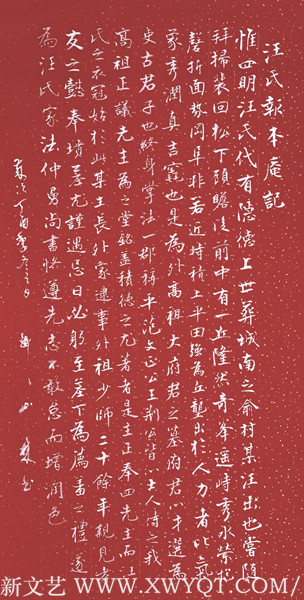 汪氏報本庵記
惟四明汪氏代有隱德上世葬城南之俞村某汪出也嘗隨
拜掃裴回松下顧瞻後前中有一丘隆然奇峯遥峙秀水縈
磬折面勢岡阜非若近時積土平田強為丘壟出於人力者比氣
象秀潤真吉竁也是為外高祖大府君之墓府君以才選為
吏古君子也終身學法一郡稱平范文正公王荊公皆以士人待之我
高祖正議先生為之堂銘蓋積德之尤著者是生正奉四先生而
氏之衣冠始於此某生長外家逮事外祖少師二十餘年親見
友之懿奉墳墓尤謹遇忌日必躬至墓下為薦羞之禮遂
為汪氏家法仲舅尚書恪遵先志不敢怠而增潤色
新文艺/WWW.XWYQT.COM/